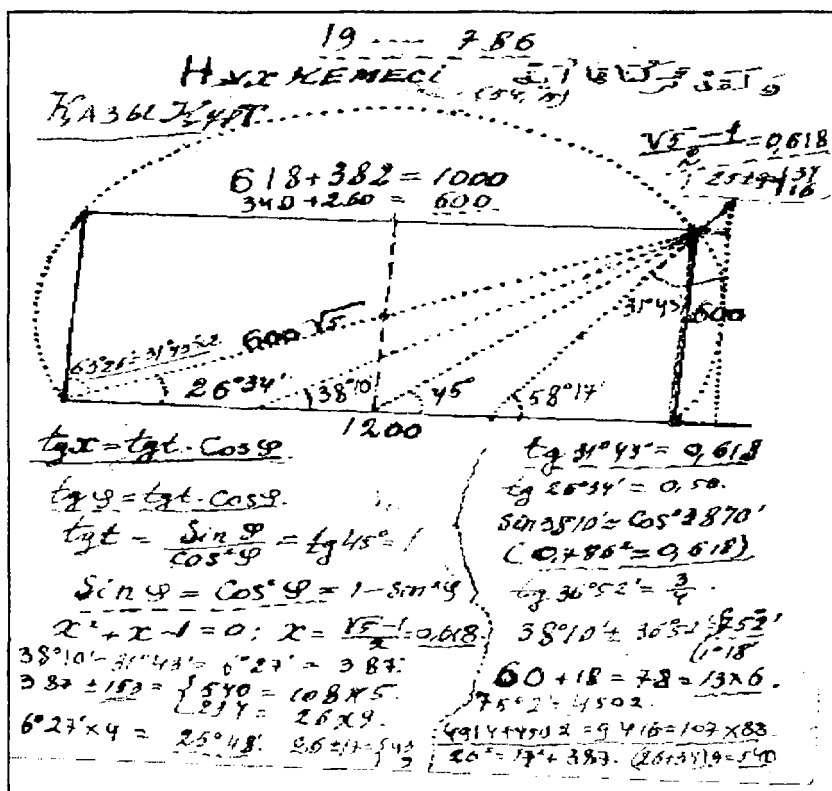 19 ---- 786
Нұх КЕМЕСІ
(54, 15)
ҚАЗЫҚҰРТ
(√5-1)/2 = 0,618
618+382=1000
340+260 = 600
31°43'
600
63°26'=31°43'×2
600√5
26°34'
38°10'
45°
58°17'
1200
tgx=tgt·Cosφ
tgφ=tgt·Cosφ.
tgt = Sinφ/cos²φ = tg45°=1
Sinφ=Cos²φ=1-Sin²φ
x²+x-1=0; x=(√5-1)/2=0,618
38°10'-31°43'=6°27'=387.
387±153= {540=108×5.
234= 26×9.
6°27'×4 = 25°48'.
tg 31°43'=0,618
tg 26°34'=0,50.
sin 38°10'=Cos²3810'
(0,786²=0,618)
tg 36°52'=3/4.
38°10'±36°52' {75°2'
1°18'
60+18=78=13×6.
75°2'=4502
4914+4502=9416=107×88
26²=17²+387. (26+34)9=540